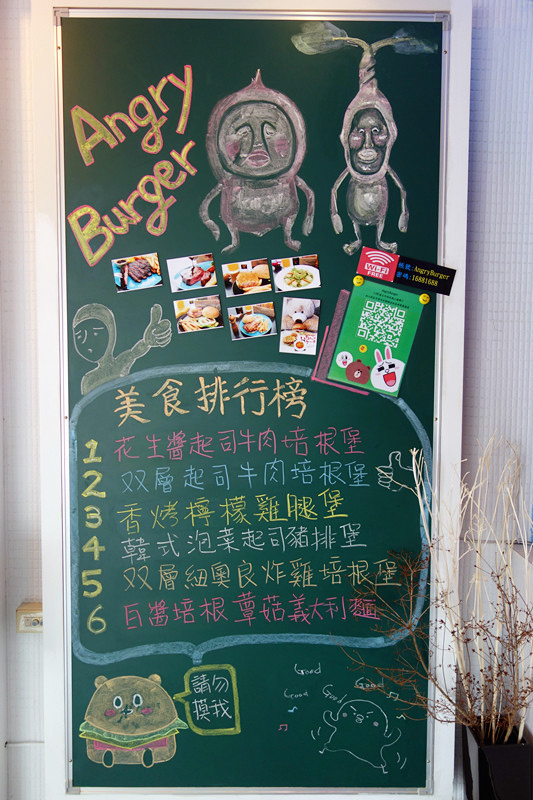 Angry
Burger
Wi-Fi
FREE
帳號:AngryBurger
密碼:16881688
美食排行榜
1 花生醬起司牛肉培根堡
2 双層起司牛肉培根堡
3 香烤檸檬雞腿堡
4 韓式泡菜起司豬排堡
5 双層紐奧良炸雞培根堡
6 白醬培根蕈菇義大利麵
請勿
摸我
Good
Good
Good
Good